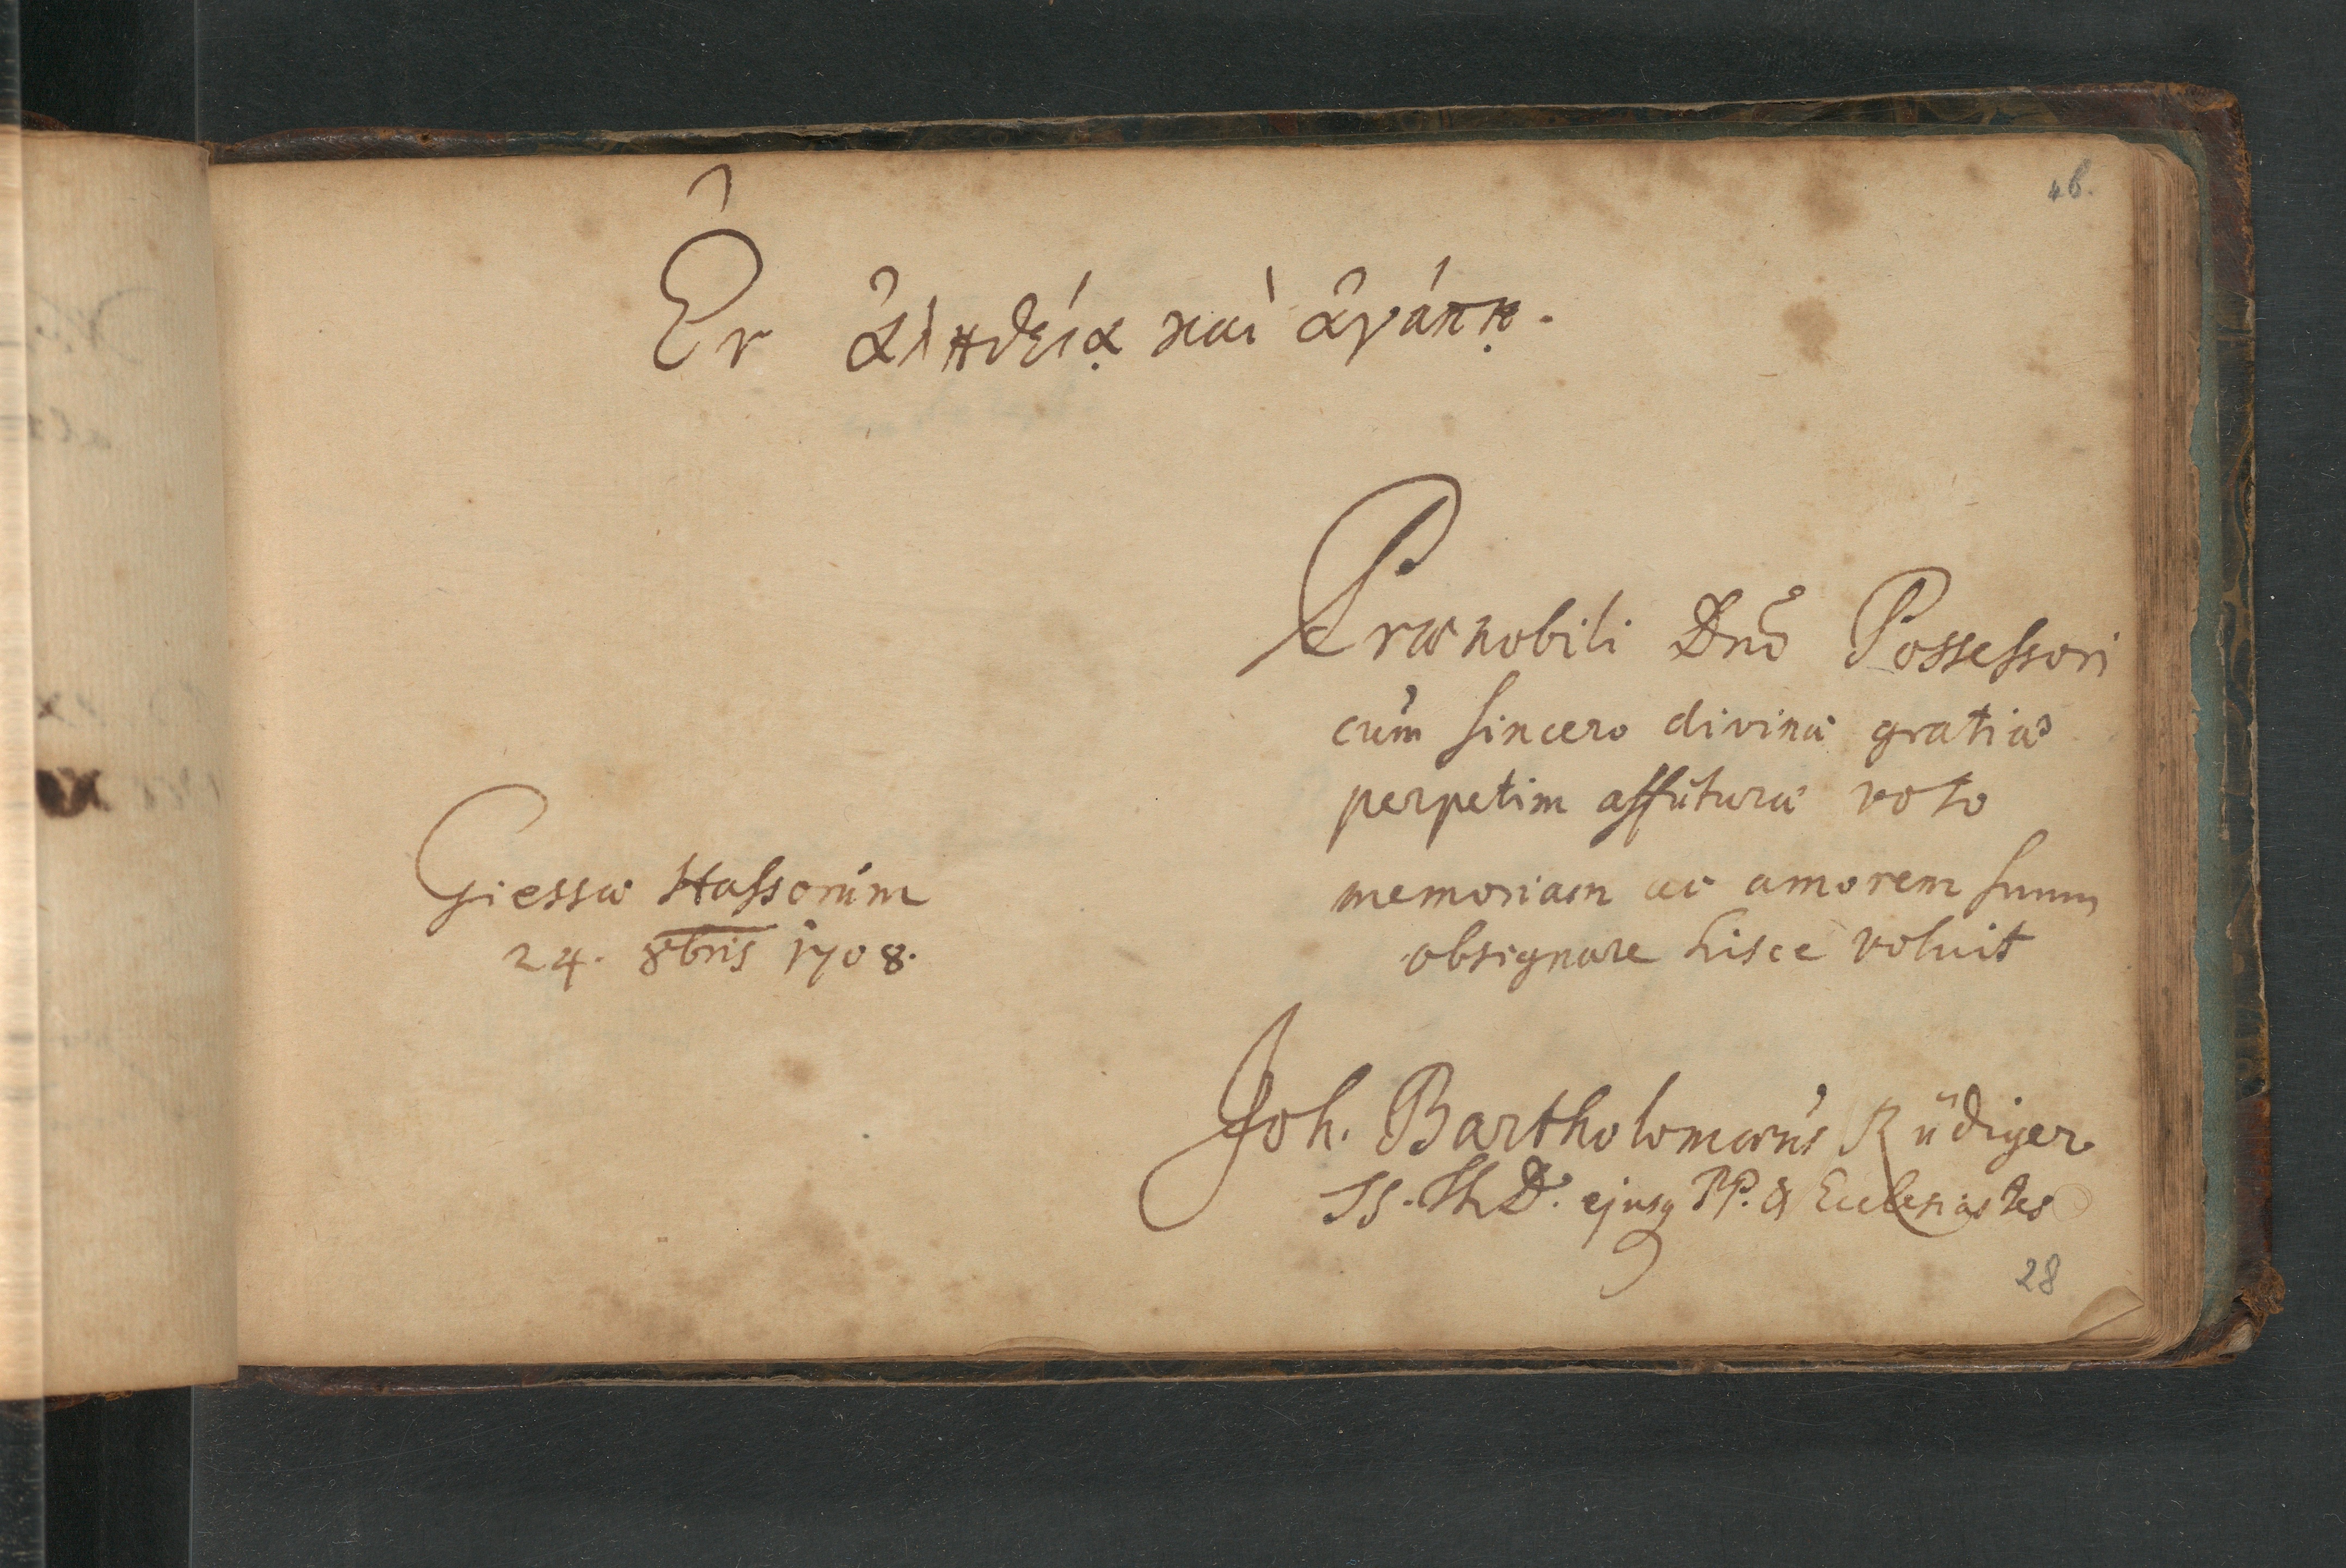 46.
Ἐν ἀληθείᾳ καὶ ἀγάπῃ.
Prænobili Dnō Possessori
cum sincero divinæ gratiæ
perpetim affuturæ voto
memoriam ac amorem suum
obsignare hisce voluit
Giessæ Hassorum
24. 8bris 1708.
Joh. Bartholomæus Rüdiger
SS. Th. D. ejusq PP. & Ecclesiastes
28